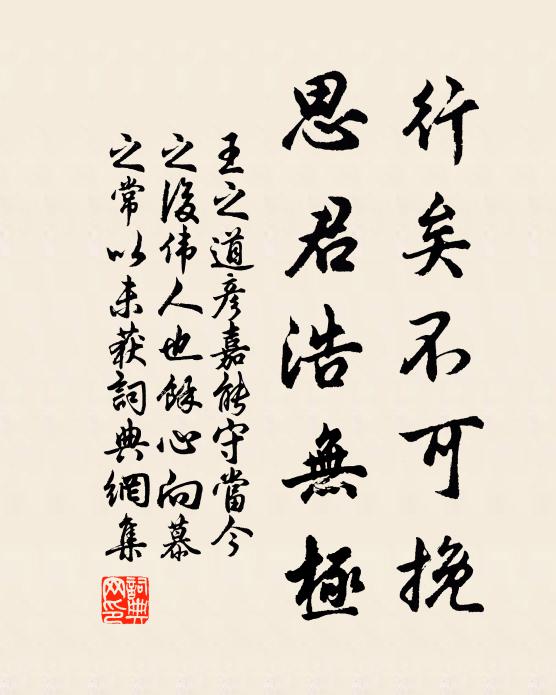 行矣不可挽
思君浩無極
王之道彦嘉能守當今
之後伟人也餘心向慕
之常以未获詞典網集
詞典網印